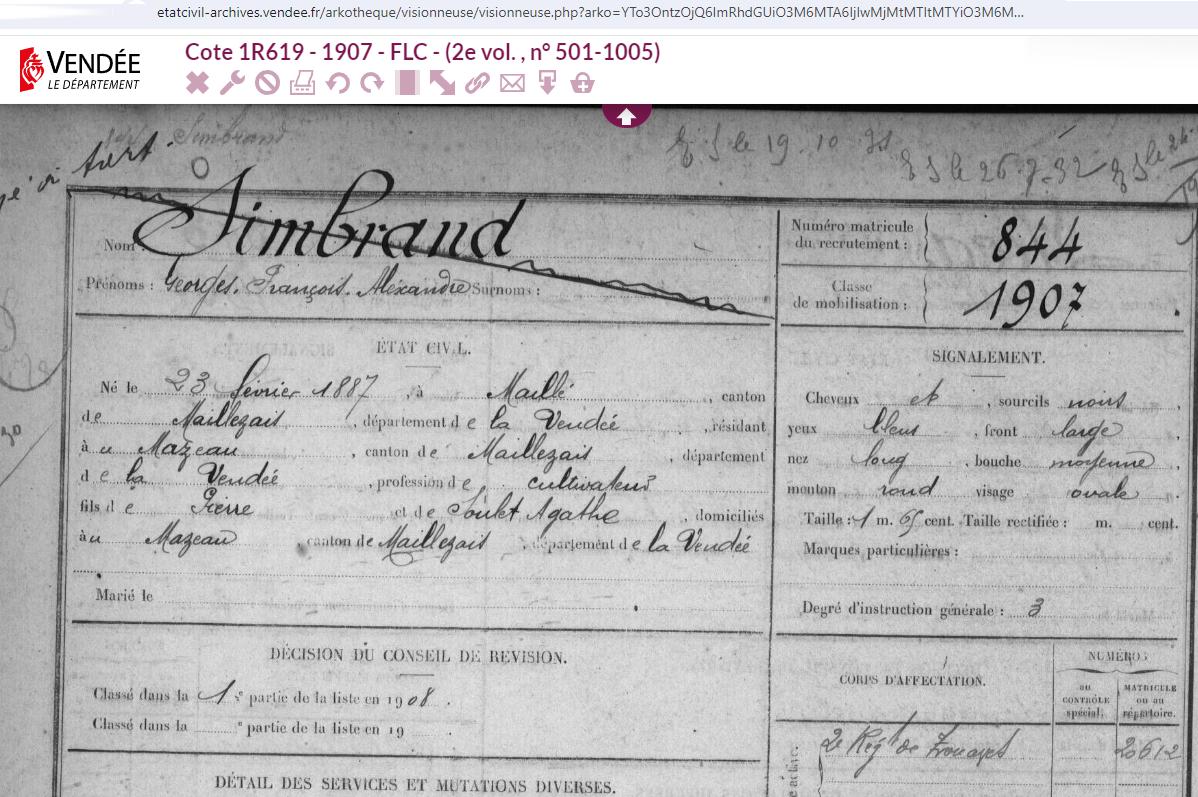 etatcivil-archives.vendee.fr/arkotheque/visionneuse/visionneuse.php?arko=YTo3OntzOjQ6ImRhdGUiO3M6MTA6IjIwMjMtMTItMTYiO3M6M...
VENDÉE
LE DÉPARTEMENT
Cote 1R619 - 1907 - FLC - (2e vol. , n° 501-1005)
Simbrand
tort
E S le 19. 10. 31
E S le 26-7-32 E S le
Nom : Simbrand
Prénoms : Georges. François. Alexandre Surnoms :
Numéro matricule du recrutement : 844
Classe de mobilisation : 1907
ÉTAT CIVIL.
Né le 23 février 1887, à Maillé, canton
de Maillezais, département de la Vendée, résidant
à u Mazeau, canton de Maillezais, département
de la Vendée, profession de cultivateur
fils de Pierre et de Soulet Agathe, domiciliés
à u Mazeau, canton de Maillezais, département de la Vendée
Marié le
SIGNALEMENT.
Cheveux et, sourcils noirs,
yeux bleus, front large,
nez long, bouche moyenne,
menton rond visage ovale.
Taille : 1 m. 65 cent. Taille rectifiée : m. cent.
Marques particulières :
Degré d'instruction générale : 3
DÉCISION DU CONSEIL DE REVISION.
Classé dans la 1re partie de la liste en 1908.
Classé dans la e partie de la liste en 19
DÉTAIL DES SERVICES ET MUTATIONS DIVERSES.
CORPS D'AFFECTATION.
NUMÉROS
au CONTRÔLE spécial.
MATRICULE ou au répertoire.
2e Régt de Zouaves
2612